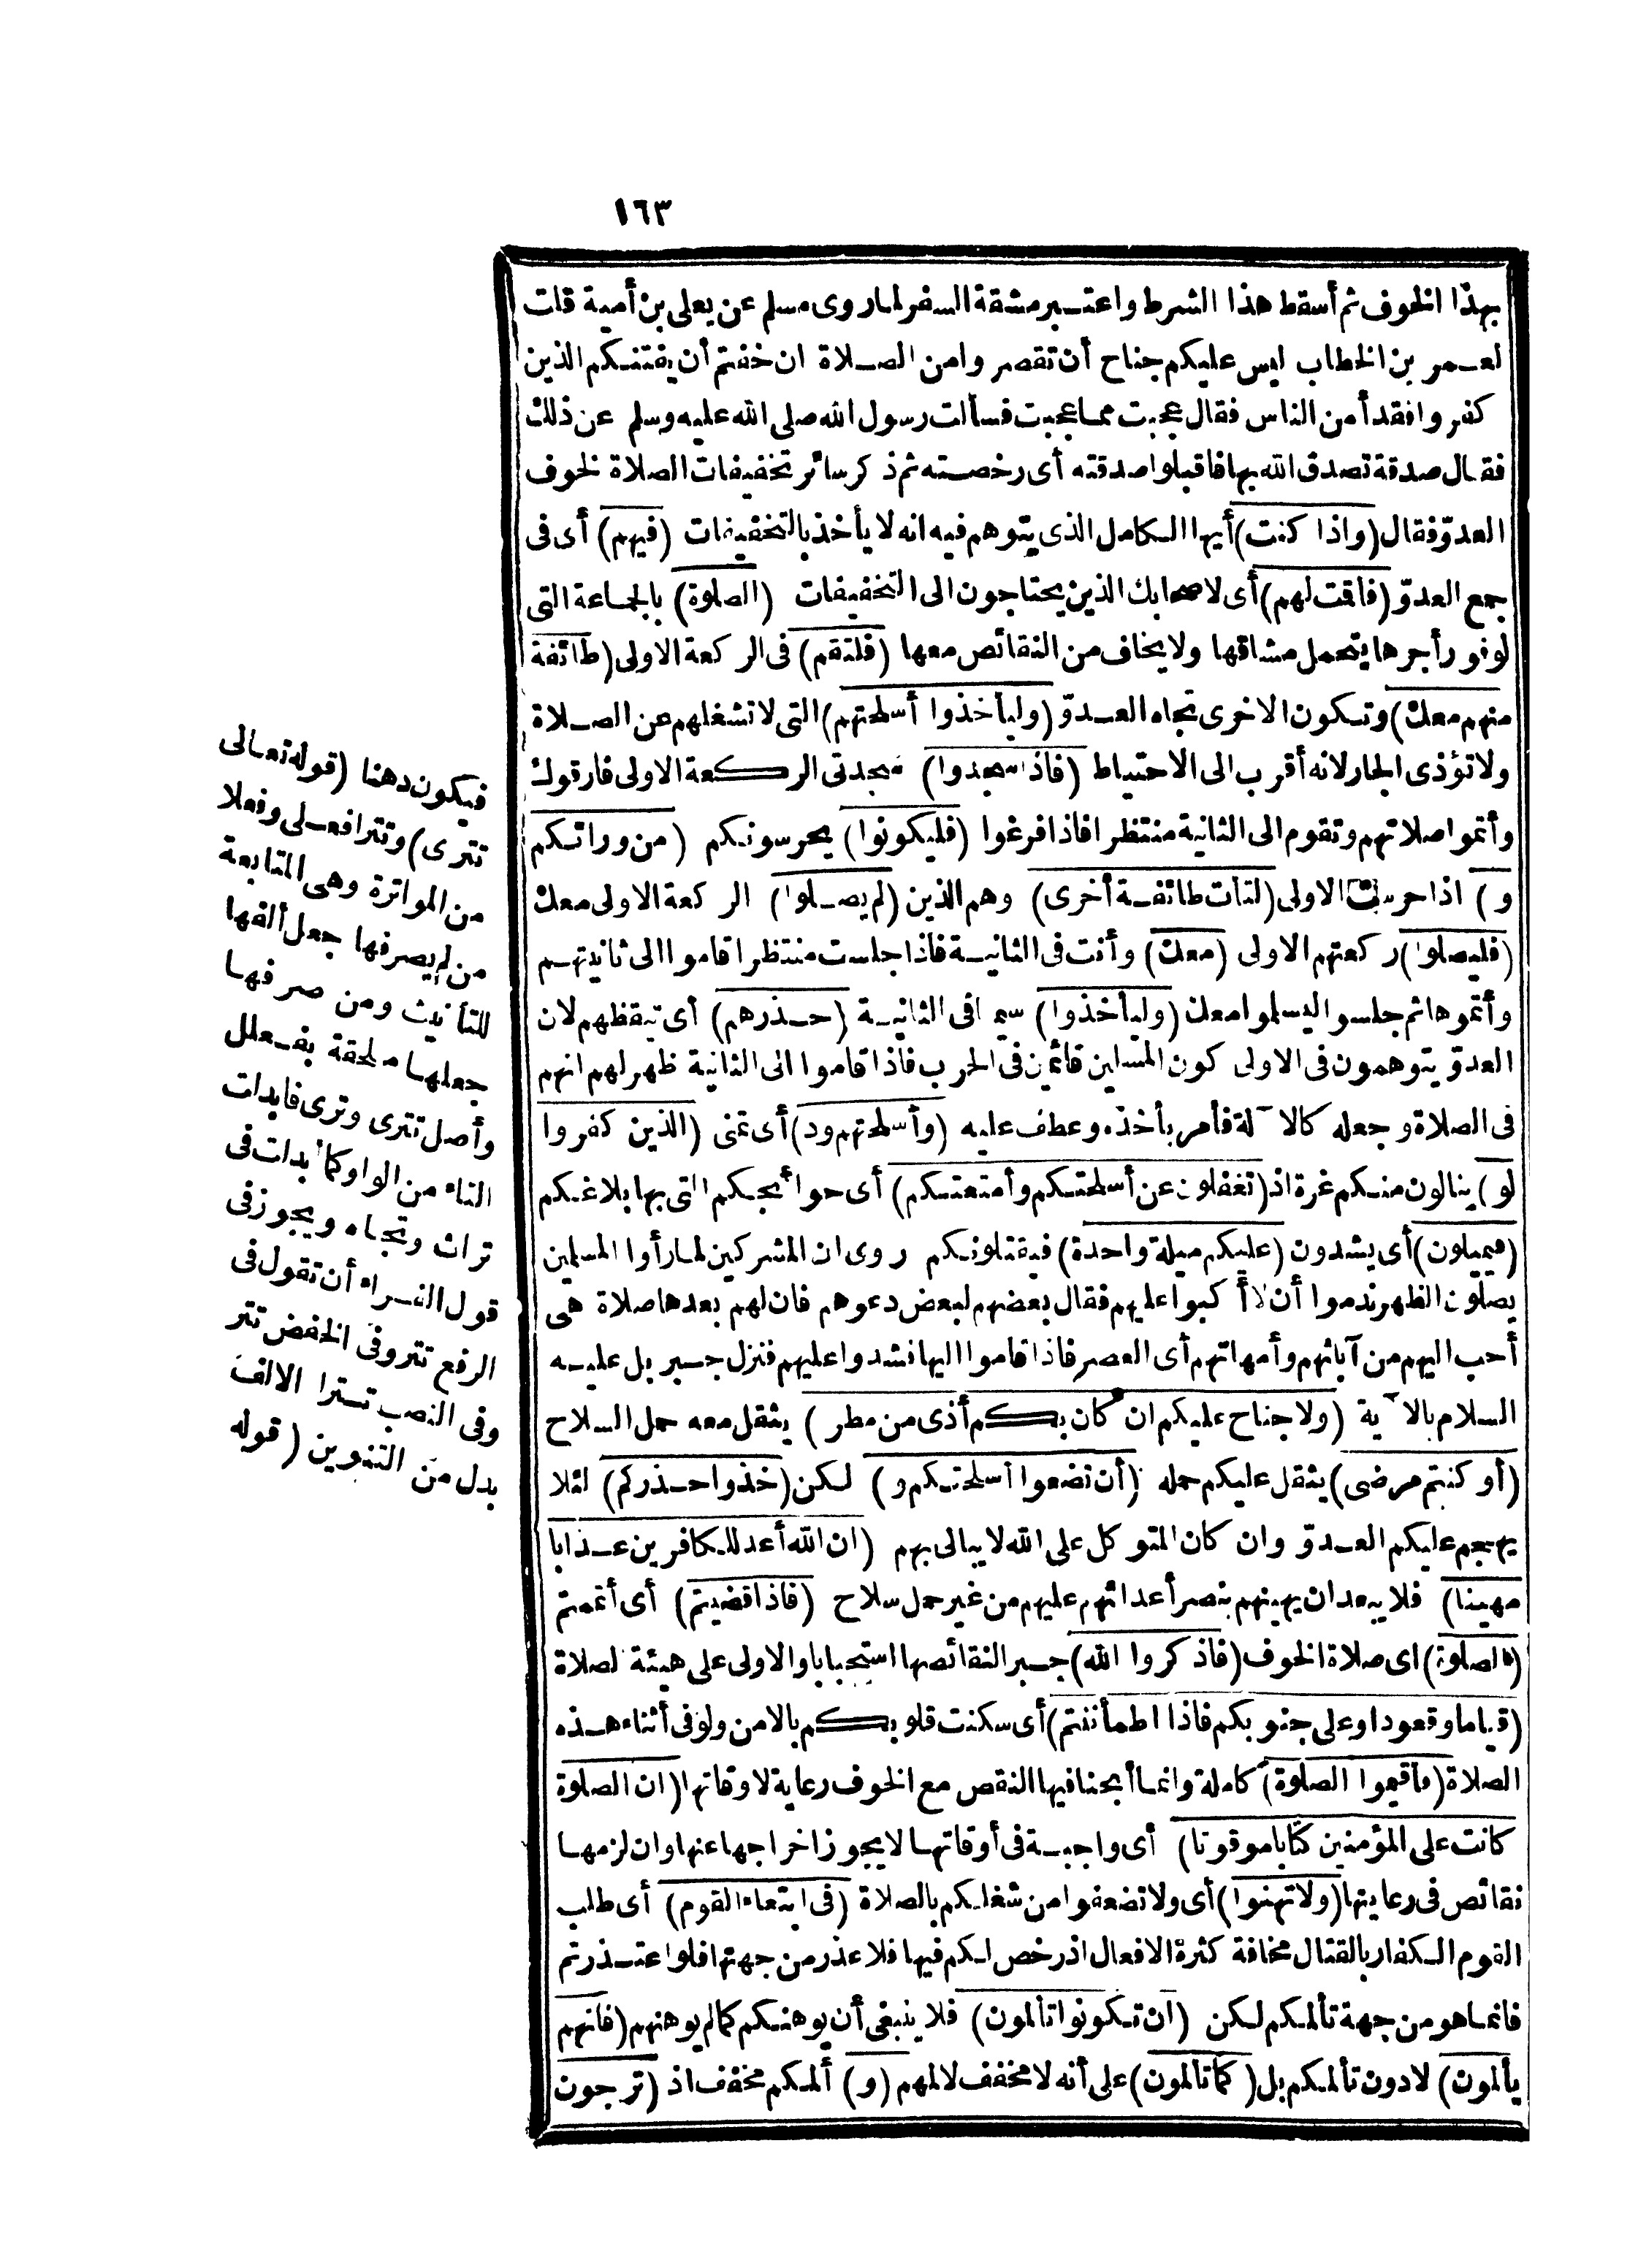 ١٦٣
بهذا الخوف ثم أسقط هذا الشرط واعتبر مشقة السفر لما روى مسلم عن يعلى بن أمية قلت
لعمر بن الخطاب ليس عليكم جناح أن تقصروا من الصلاة ان خفتم أن يفتنكم الذين
كفروا فقد أمن الناس فقال عجبت مما عجبت فسألت رسول الله صلى الله عليه وسلم عن ذلك
فقال صدقة تصدق الله بها فاقبلوا صدقته أى رخصته ثم ذكر سائر تخفيفات الصلاة لخوف
العدوّ فقال (واذا كنت) أيها الكامل الذى يتوهم فيه انه لا يأخذ بالتخفيفات (فيهم) أى فى
جمع العدوّ (فأقمت لهم) أى لاصحابك الذين يحتاجون الى التخفيفات (الصلوة) بالجماعة التى
لوفور أجرها يتحمل مشاقها ولا يخاف من النقائص معها (فلتقم) فى الركعة الاولى (طائفة
منهم معك) وتكون الاخرى تجاه العدوّ (وليأخذوا أسلحتهم) التى لا تشغلهم عن الصلاة
ولا تؤذى الجار لانه أقرب الى الاحتياط (فاذا سجدوا) سجدتى الركعة الاولى فارقوك
وأتموا صلاتهم وتقوم الى الثانية منتظرا فاذا فرغوا (فليكونوا) يحرسونكم (من ورائكم
و) اذا حرست الاولى (لتأت طائفة أخرى) وهم الذين (لم يصلوا) الركعة الاولى معك
(فليصلوا) ركعتهم الاولى (معك) وأنت فى الثانية فاذا جلست منتظرا قاموا الى ثانيتهم
وأتموها ثم جلسوا ليسلموا معك (وليأخذوا) سيما فى الثانية (حذرهم) أى تيقظهم لان
العدوّ يتوهمون فى الاولى كون المسلمين قائمين فى الحرب فاذا قاموا الى الثانية ظهر لهم انهم
فى الصلاة وجعله كالآلة فأمر بأخذه وعطف عليه (وأسلحتهم ود) أى تمنى (الذين كفروا
لو) ينالون منكم غرة اذ (تغفلون عن أسلحتكم وأمتعتكم) أى حوائجكم التى بها بلاغكم
(فيميلون) أى يشدون (عليكم ميلة واحدة) فيقتلونكم روى ان المشركين لما رأوا المسلمين
يصلون الظهر ندموا أن لا أكبوا عليهم فقال بعضهم لبعض دعوهم فان لهم بعدها صلاة هى
أحب اليهم من آبائهم وأمهاتهم أى العصر فاذا قاموا اليها نشدوا عليهم فنزل جبريل عليه
السلام بالآية (ولا جناح عليكم ان كان بكم أذى من مطر) يثقل معه حمل السلاح
(أو كنتم مرضى) يثقل عليكم حمله (أن تضعوا أسلحتكم و) لكن (خذوا حذركم) لئلا
يهجم عليكم العدوّ وان كان المتوكل على الله لا يبالى بهم (ان الله أعد للكافرين عذابا
مهينا) فلا يبعد ان يهينهم بنصر أعدائهم عليهم من غير حمل سلاح (فاذا قضيتم) أى أتممتم
(الصلوة) اى صلاة الخوف (فاذكروا الله) جبر النقائصها استحبابا والاولى على هيئة الصلاة
(قياما وقعودا وعلى جنوبكم فاذا اطمأننتم) أى سكنت قلوبكم بالامن ولو فى أثناء هذه
الصلاة (فأقيموا الصلوة) كاملة وانما أبحنا فيها النقص مع الخوف رعاية لاوقاتها (ان الصلوة
كانت على المؤمنين كتابا موقوتا) أى واجبة فى أوقاتها لا يجوز اخراجها عنها وان لزمها
نقائص فى رعايتها (ولا تهنوا) أى ولا تضعفوا من شغلكم بالصلاة (فى ابتغاء القوم) أى طلب
القوم الكفار بالقتال مخافة كثرة الافعال اذ رخص لكم فيها فلا عذر من جهتها فلو اعتذرتم
فانما هو من جهة تألمكم لكن (ان تكونوا تألمون) فلا ينبغى أن يوهنكم كما لم يوهنهم (فانهم
يألمون) لا دون تألمكم بل (كما تألمون) على أنه لا مخفف لالمهم (و) ألمكم مخفف اذ (ترجون
فيكون دهنا (قوله تعالى
تترى) وتترا فعلى وفعلا
من المواترة وهى المتابعة
من لم يصرفها جعل ألفها
للتأنيث ومن صرفها
جعلها ملحقة بفعلل
وأصل تترى وترى فابدلت
التاء من الواو كما أبدلت فى
تراث وتجاه ويجوز فى
قول الفراء أن تقول فى
الرفع تتر وفى الخفض تتر
وفى النصب تترا الالف
بدل من التنوين (قوله